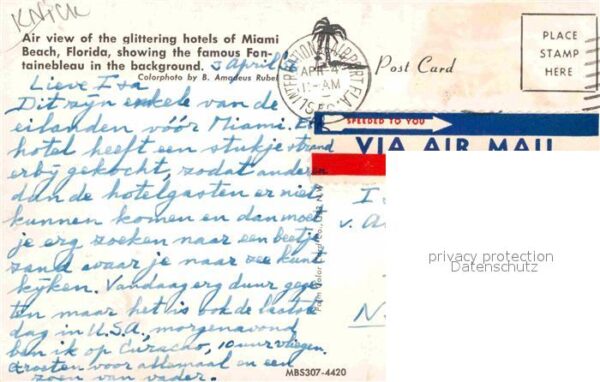 KNICK
Air view of the glittering hotels of Miami
Beach, Florida, showing the famous Fon-
tainebleau in the background.
Colorphoto by B. Amadeus Rubel
3 april
Lieve Isa
Dit zijn enkele van de
eilanden vóór Miami. Elk
hotel heeft een stukje strand
erbij gekocht, zodat anderen
dan de hotelgasten er niet
kunnen komen en dan moet
je erg zoeken naar een beetje
zand waar je naar zee kunt
kijken. Vandaag erg duur gege
ten maar het is ook de laatste
dag in U.S.A., morgenavond
ben ik op Curacao, 10 uur vliegen.
Groeten voor allemaal en een
zoen van vader.
INTERNATIONAL AIRPORT FLA.
APR 4
11-AM
Post Card
PLACE
STAMP
HERE
SPEEDED TO YOU
VIA AIR MAIL
I
v. A
N
privacy protection
Datenschutz
MBS307-4420